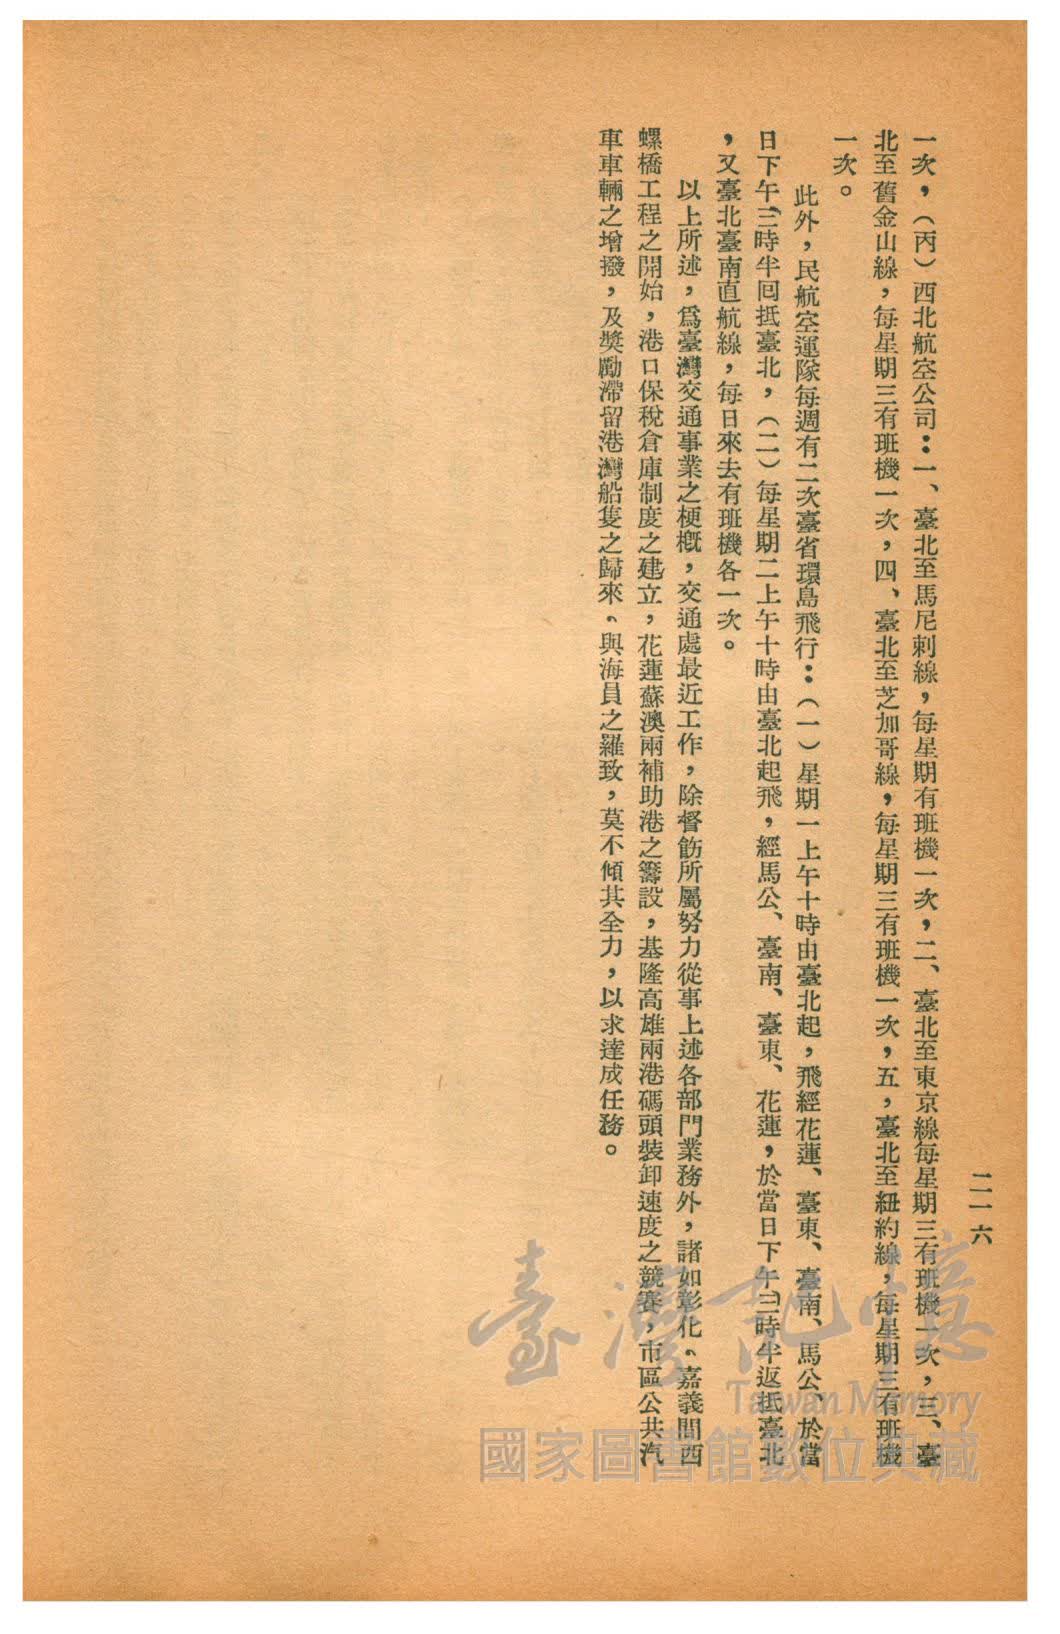 二一六
一次，（丙）西北航空公司：一、臺北至馬尼刺線，每星期有班機一次，二、臺北至東京線每星期三有班機一次，三、臺
北至舊金山線，每星期三有班機一次，四、臺北至芝加哥線，每星期三有班機一次，五，臺北至紐約線，每星期三有班機
一次。
此外，民航空運隊每週有二次臺省環島飛行：（一）星期一上午十時由臺北起，飛經花蓮、臺東、臺南、馬公、於當
日下午三時半回抵臺北，（二）每星期二上午十時由臺北起飛，經馬公、臺南、臺東、花蓮，於當日下午三時半返抵臺北
，又臺北臺南直航線，每日來去有班機各一次。
以上所述，爲臺灣交通事業之梗概，交通處最近工作，除督飭所屬努力從事上述各部門業務外，諸如彰化、嘉義間西
螺橋工程之開始，港口保稅倉庫制度之建立，花蓮蘇澳兩補助港之籌設，基隆高雄兩港碼頭裝卸速度之競賽，市區公共汽
車車輛之增撥，及獎勵滯留港灣船隻之歸來、與海員之羅致，莫不傾其全力，以求達成任務。
臺灣記憶
Taiwan Memory
國家圖書館數位典藏